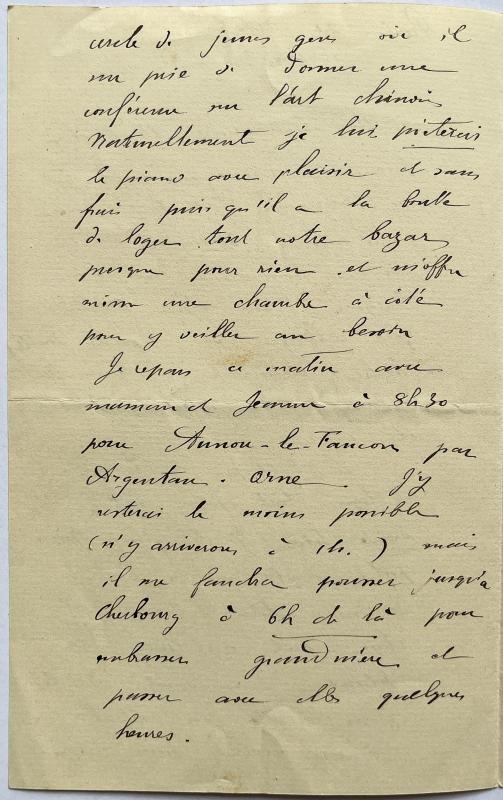 cercle de jeunes gens où il
me prie de donner une
conférence sur l'art chinois
Naturellement je lui prêterai
le piano avec plaisir et sans
frais puisqu'il a la bonté
de loger tout notre bazar
presque pour rien et m'offre
même une chambre à côté
pour y veiller au besoin
Je repars ce matin avec
maman et Jeanne à 8h30
pour Aunou-le-Faucon par
Argentan. Orne. J'y
resterai le moins possible
(n'y arriverons à 1h.) mais
il me faudra pousser jusqu'à
Cherbourg à 6h de là pour
embrasser grand'mère et
passer avec elles quelques
heures.